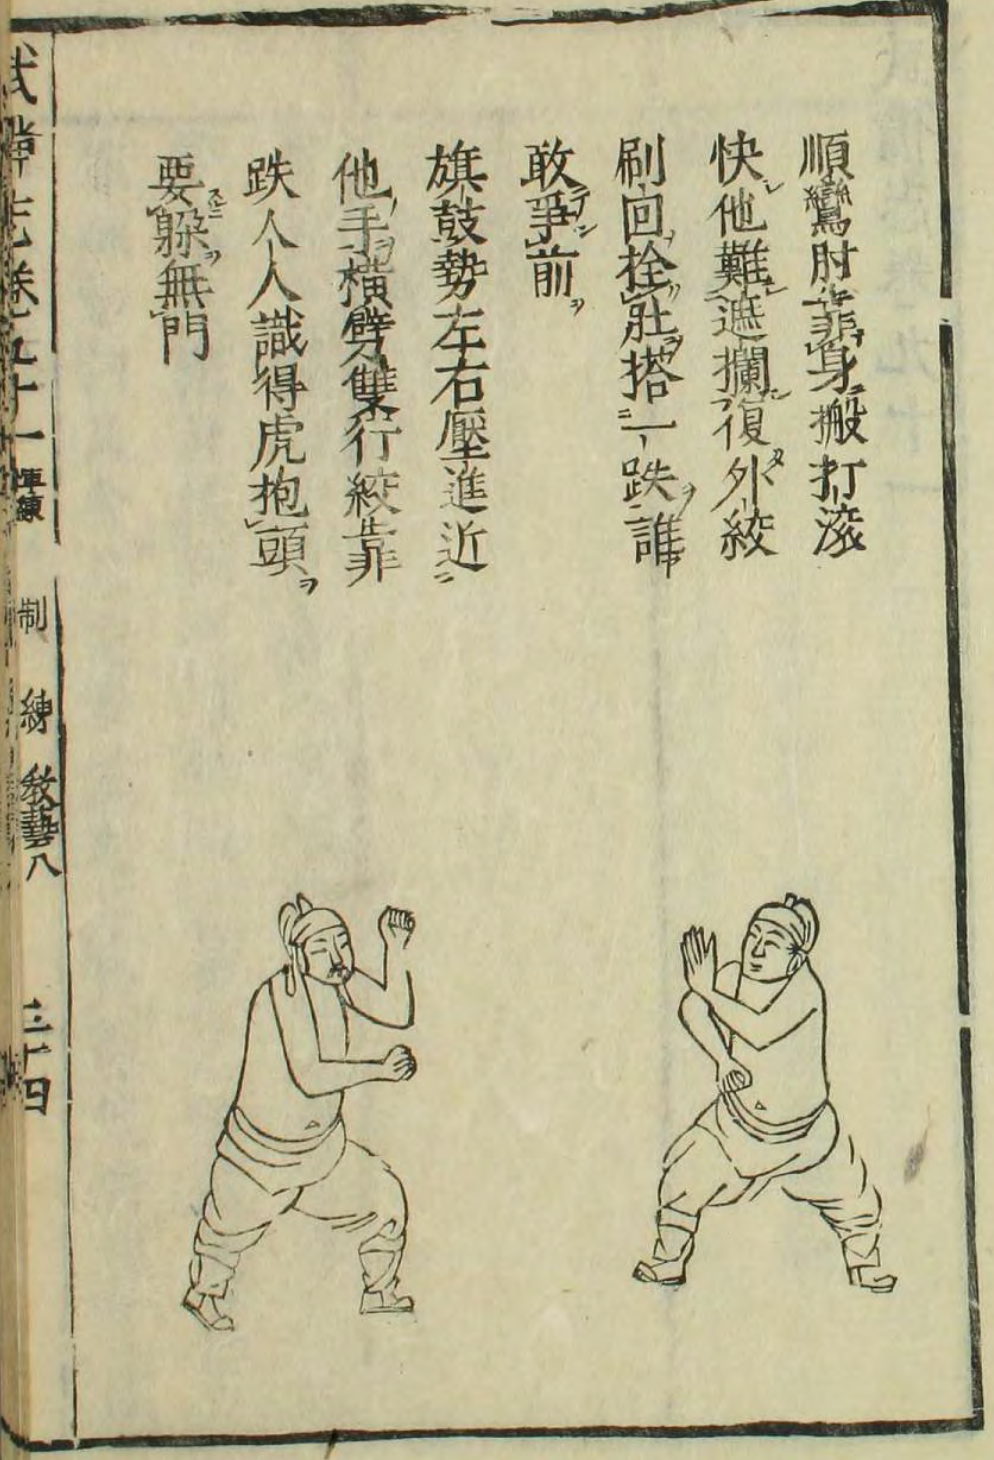 順鸞肘靠身搬打滚
快他難遮攔復外絞
刷回拴肚搭一跌誰
敢爭前
旗鼓勢左右壓進近
他手橫劈雙行絞靠
跌人人識得虎抱頭
要躲無門
武備志卷九十一 陣練 制 練 教藝八 三十四